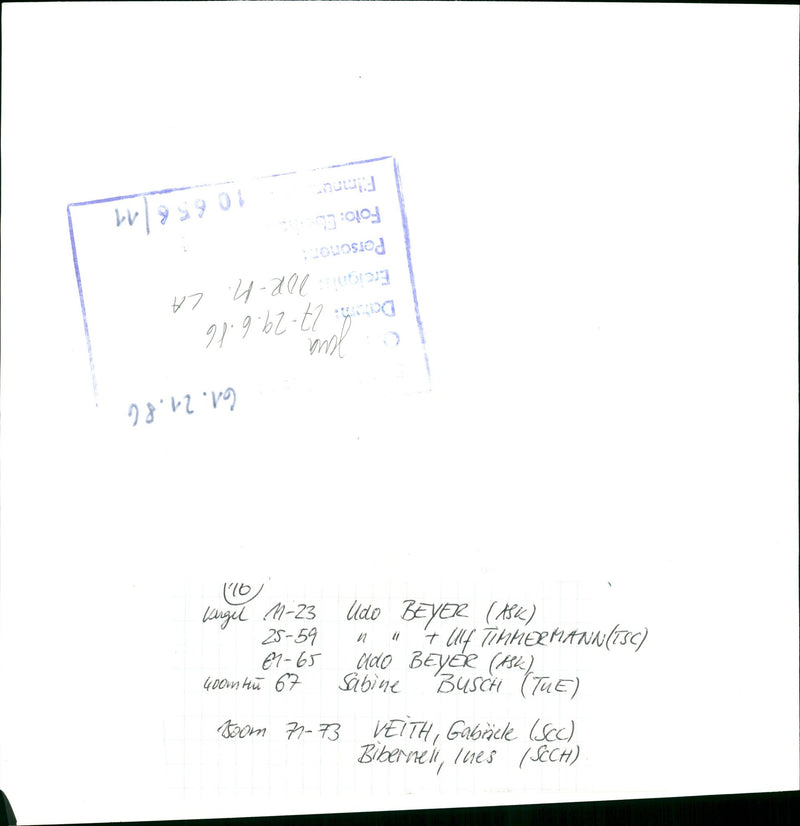 Filmnu
10656/11
Foto: Eb
Personen:
Ereignis: DDR-M. LA
Datum: 27-29.6.86
O Jena
61.21.86
(10)
Kugel 11-23 Udo BEYER (ASK)
25-59 " " + Ulf TIMMERMANN (TSC)
61-65 Udo BEYER (ASK)
400mHü 67 Sabine BUSCH (TUE)
71-73 VEITH, Gabriele (SCC)
Bibernell, Ines (SCCH)